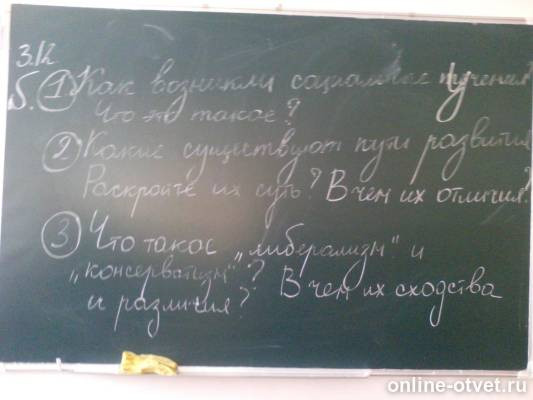 3.12
Б. 1 Как возникли социальные течения?
Что это такое?
2 Какие существуют пути развития
Раскройте их суть? В чем их отличия?
3 Что такое „либерализм" и
„консерватизм"? В чем их сходства
и различия?
online-otvet.ru